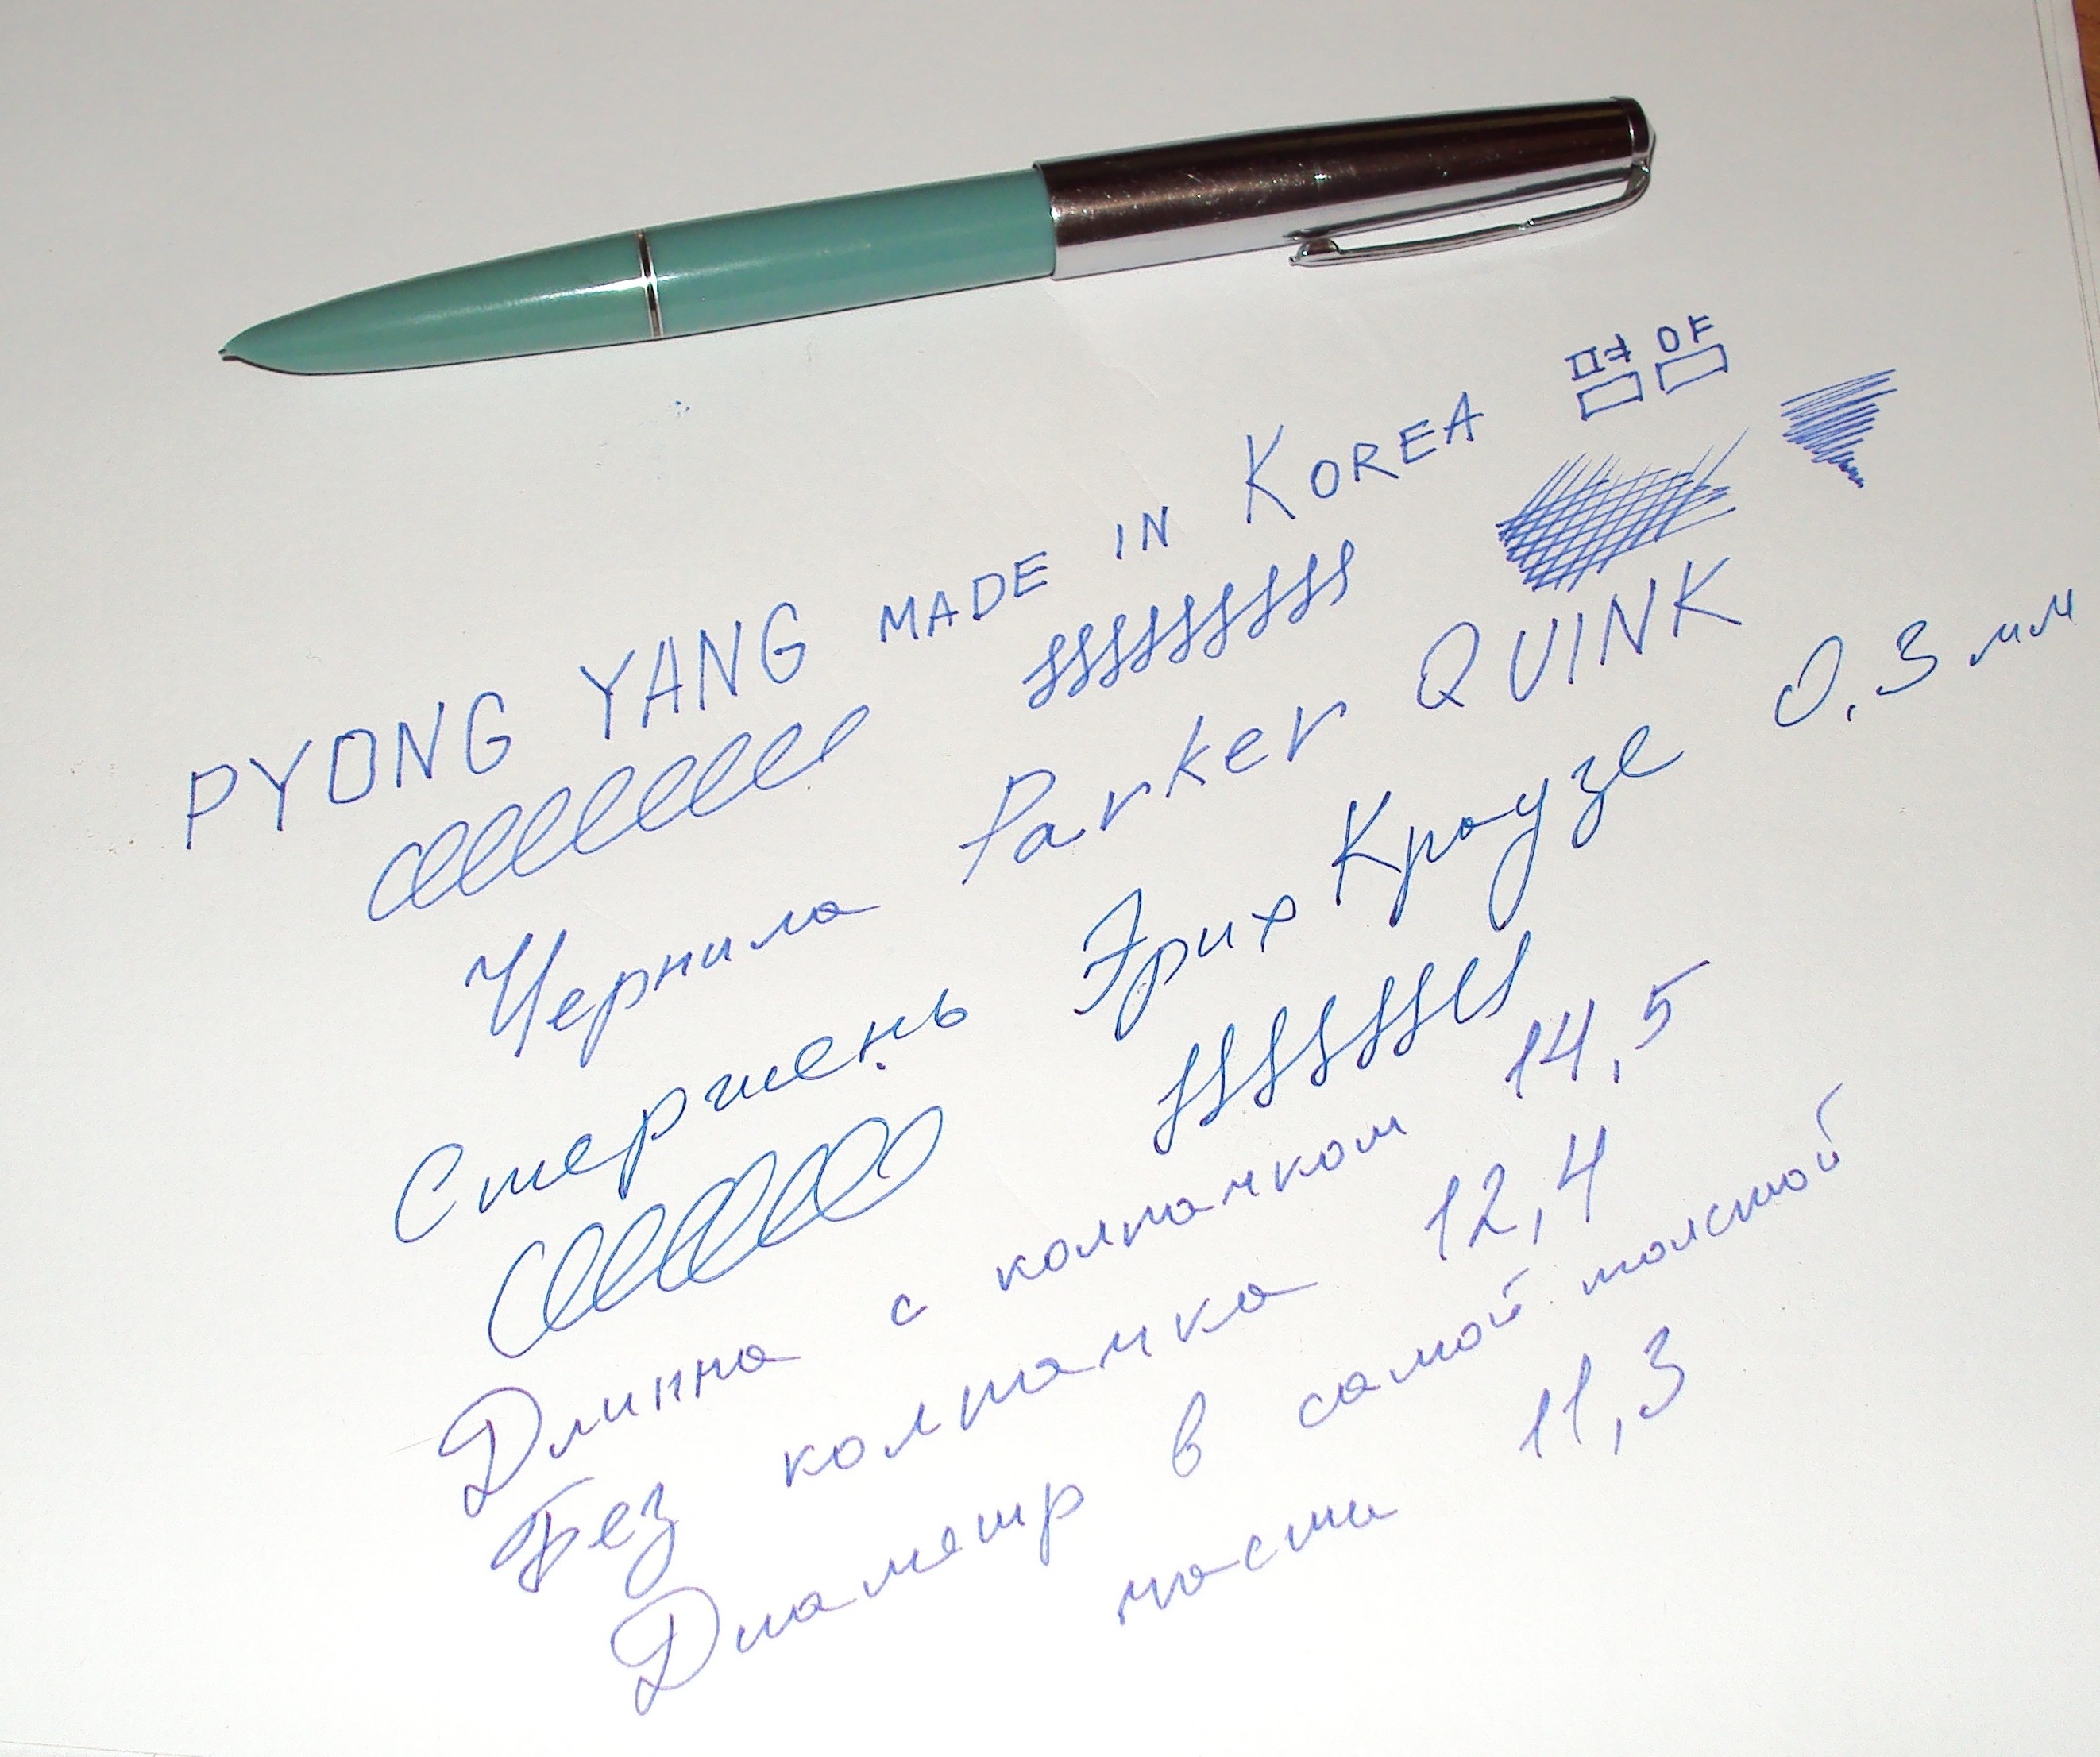 PYONG YANG MADE IN KOREA 폄얌
Чернила Parker QUINK
Стержень Эрих Краузе 0,3 мм
Длинна с колпачком 14,5
Без колпачка 12,4
Диаметр в самой толстой
части 11,3